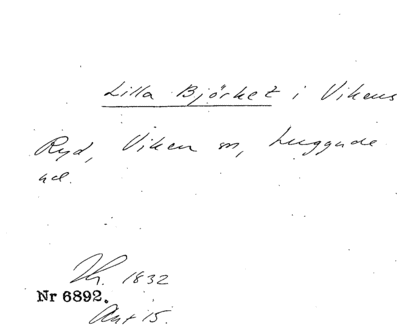 Lilla Björket i Vikens
Ryd, Viken sn, Luggude
hd.
Th. 1832
Nr 6892.
Akt 15.